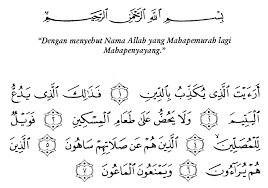 بِسْمِ اللَّهِ الرَّحْمَٰنِ الرَّحِيمِ
“Dengan menyebut Nama Allah yang Mahapemurah lagi
Mahapenyayang.”
أَرَءَيْتَ الَّذِي يُكَذِّبُ بِالدِّينِ ١ فَذَٰلِكَ الَّذِي يَدُعُّ
الْيَتِيمَ ٢ وَلَا يَحُضُّ عَلَىٰ طَعَامِ الْمِسْكِينِ ٣ فَوَيْلٌ
لِّلْمُصَلِّينَ ٤ الَّذِينَ هُمْ عَن صَلَاتِهِمْ سَاهُونَ ٥ الَّذِينَ
هُمْ يُرَاءُونَ ٦ وَيَمْنَعُونَ الْمَاعُونَ ٧